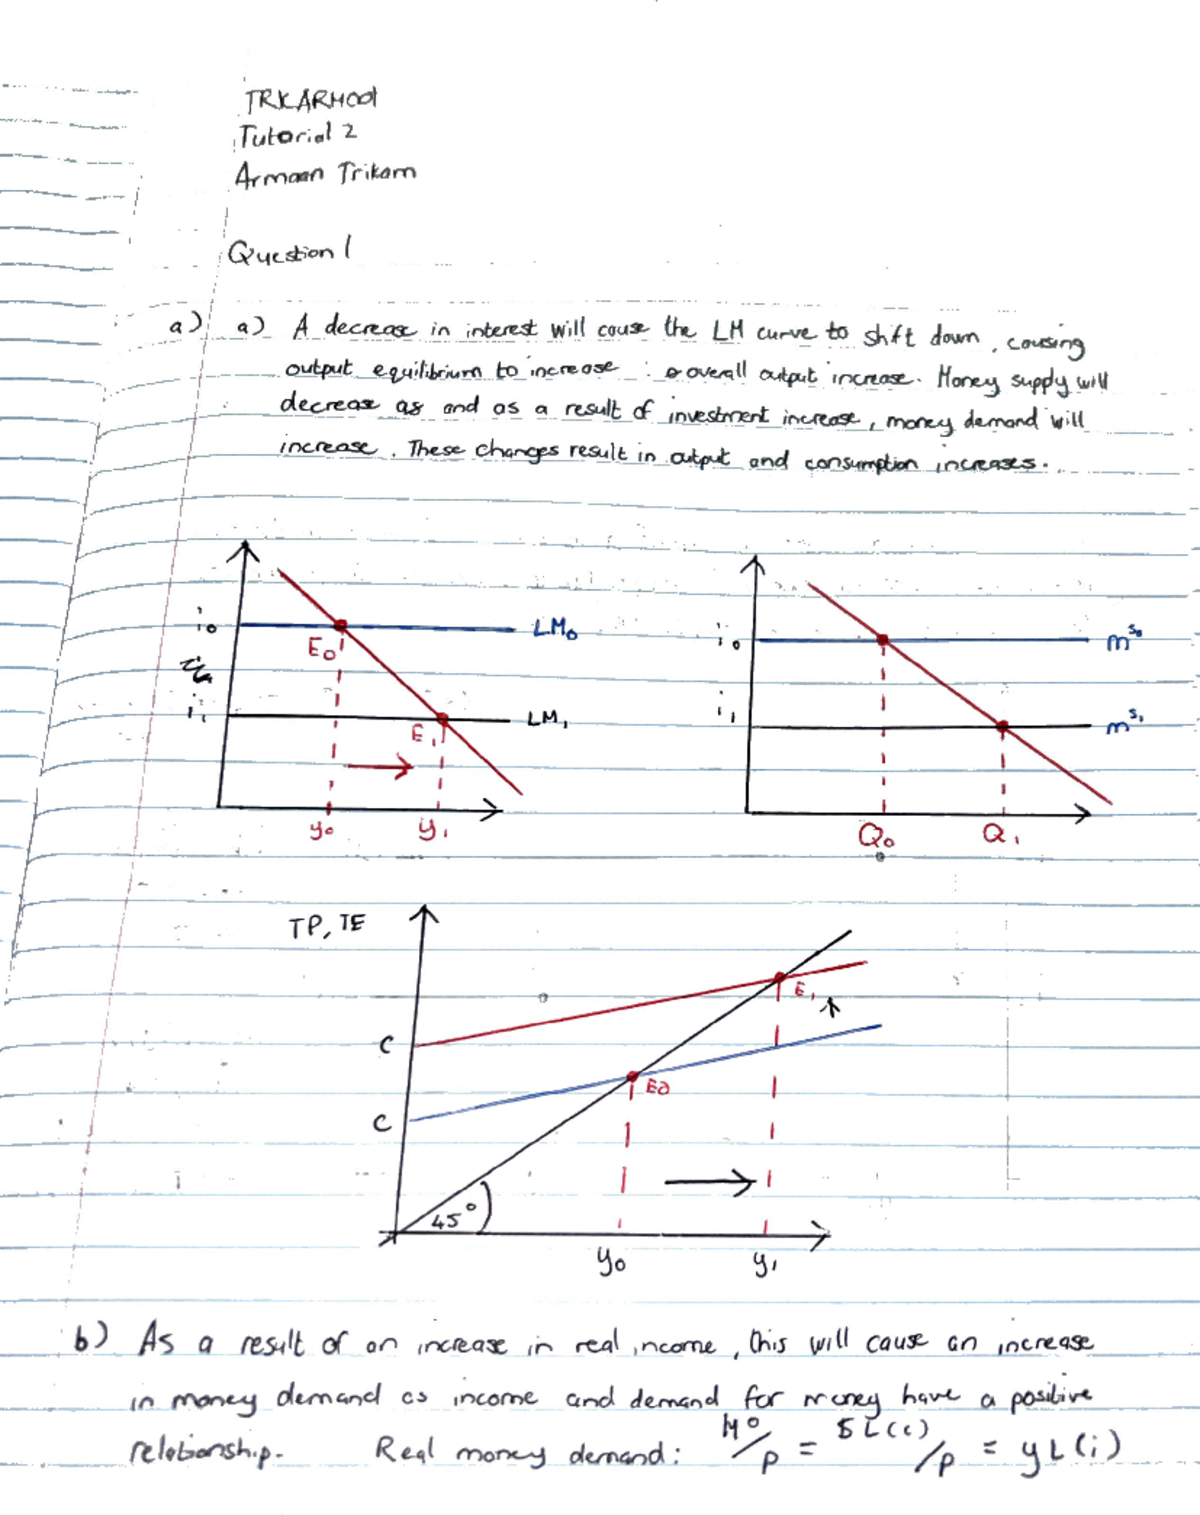 TRKARM001
Tutorial 2
Armaan Trikam
Question 1
a) a) A decrease in interest will cause the LM curve to shift down, causing
output equilibrium to increase ∴ overall output increase. Money supply will
decrease as and as a result of investment increase, money demand will
increase. These changes result in output and consumption increases.
i₀ LM₀
E₀
i₁ LM₁
E₁
y₀ y₁
i₀ mˢ⁰
i₁ mˢ¹
Q₀ Q₁
TP, TE
C E₁
C E₀
45°
y₀ y₁
b) As a result of an increase in real income, this will cause an increase
in money demand as income and demand for money have a positive
relationship. Real money demand: Mᴰ/p = $L(i)/p = yL(i)